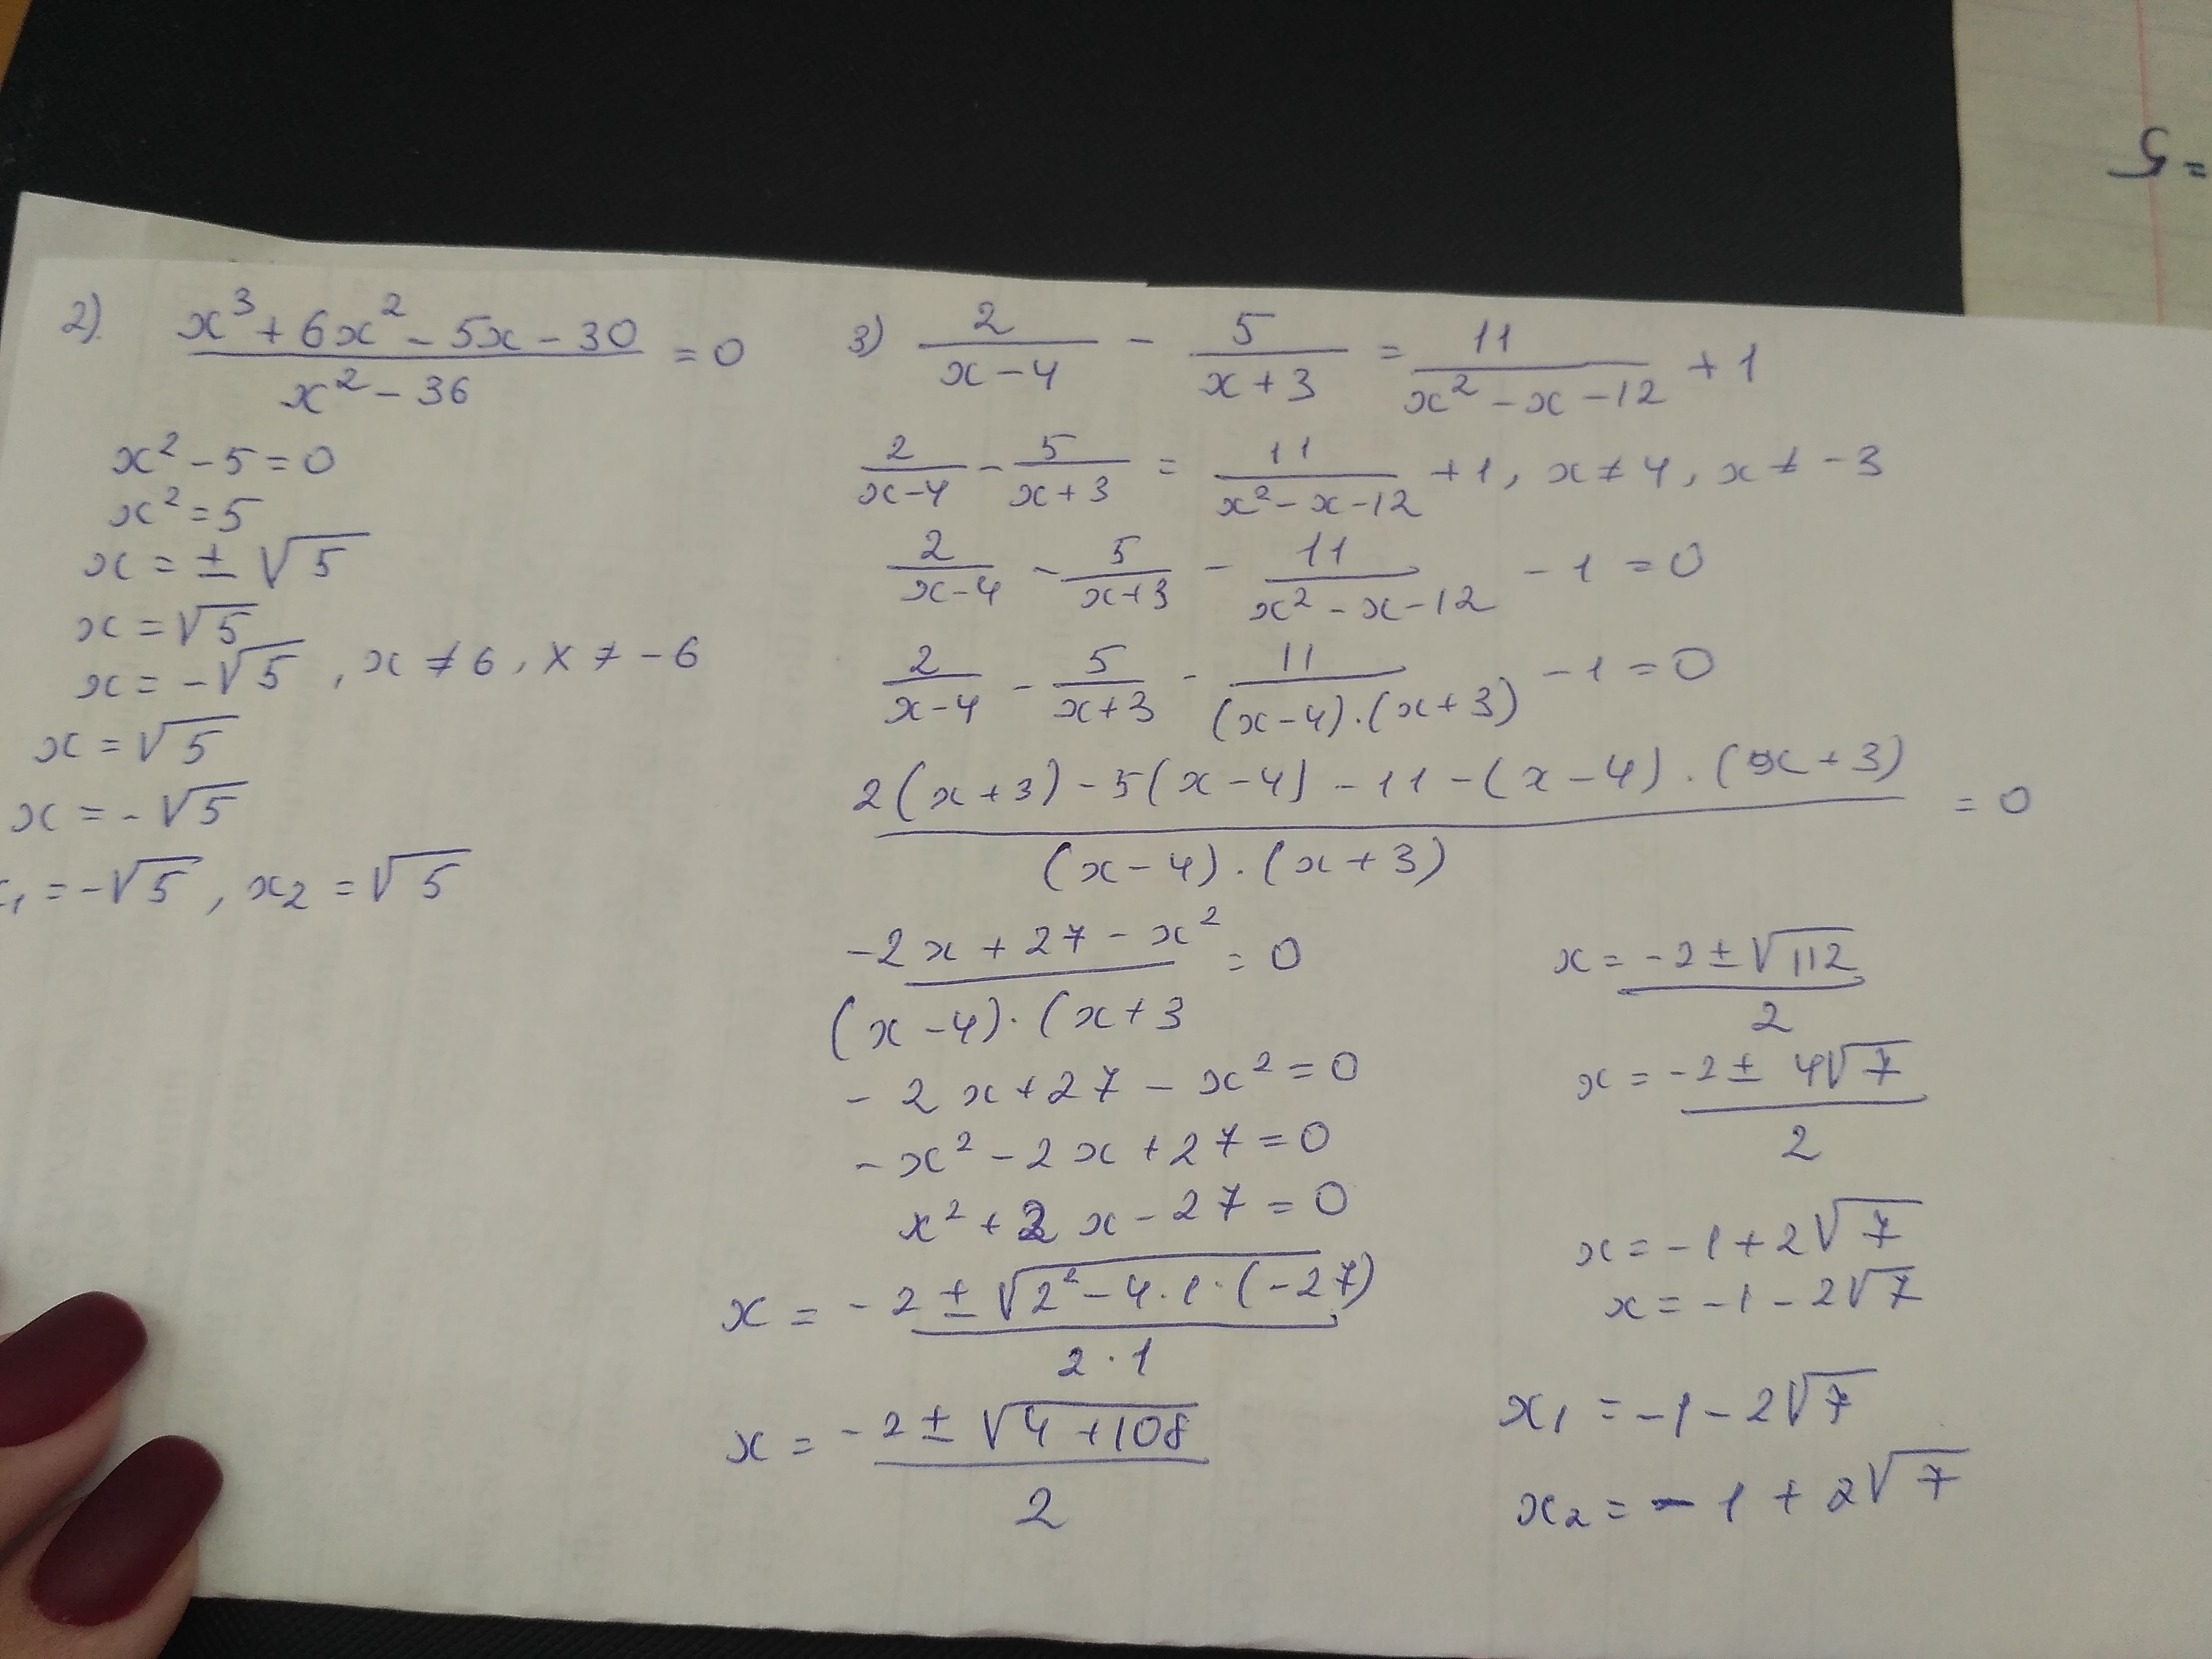 2). x³ + 6x² - 5x - 30 / x² - 36 = 0
x² - 5 = 0
x² = 5
x = ± √5
x = √5
x = -√5 , x ≠ 6 , x ≠ -6
x = √5
x = -√5
₁ = -√5 , x₂ = √5
3) 2 / x - 4 - 5 / x + 3 = 11 / x² - x - 12 + 1
2 / x - 4 - 5 / x + 3 = 11 / x² - x - 12 + 1 , x ≠ 4 , x ≠ -3
2 / x - 4 - 5 / x + 3 - 11 / x² - x - 12 - 1 = 0
2 / x - 4 - 5 / x + 3 - 11 / (x - 4) · (x + 3) - 1 = 0
2(x + 3) - 5(x - 4) - 11 - (x - 4) · (x + 3) / (x - 4) · (x + 3) = 0
-2x + 27 - x² / (x - 4) · (x + 3 = 0
- 2x + 27 - x² = 0
- x² - 2x + 27 = 0
x² + 2x - 27 = 0
x = -2 ± √2² - 4 · 1 · (-27) / 2 · 1
x = -2 ± √4 + 108 / 2
x = -2 ± √112 / 2
x = -2 ± 4√7 / 2
x = -1 + 2√7
x = -1 - 2√7
x₁ = -1 - 2√7
x₂ = -1 + 2√7
= 5